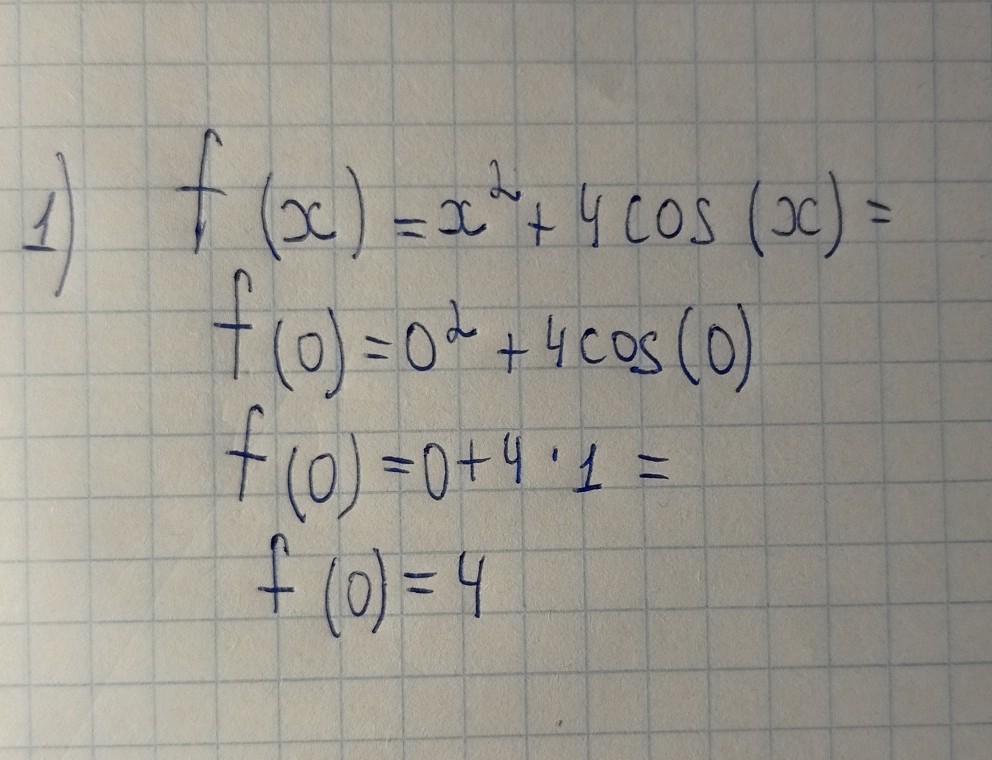 1) f(x) = x² + 4cos(x) =
f(0) = 0² + 4cos(0)
f(0) = 0 + 4 · 1 =
f(0) = 4